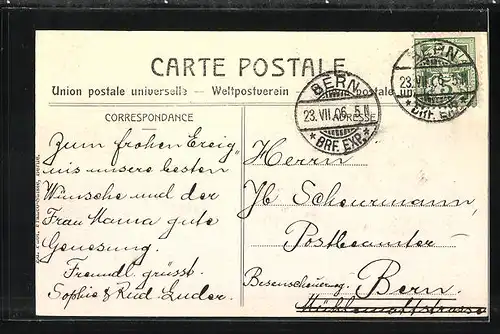 CARTE POSTALE
Union postale universelle — Weltpostverein — postale un
CORRESPONDANCE
ADRESSE
BERN
23.VII.06. 5.N
* BRF. EXP. *
BERN
23.VII.06. 5.N
* BRF. EXP. *
5
Zum frohen Ereig-
nis unsere besten
Wünsche und der
Frau Mama gute
Genesung.
Freundl. grüsst
Sophie & Rud. Luder.
Herrn
Jb Scheurmann,
Postbeamter
Besenscheuerweg. Bern.
Mühlemattstrasse